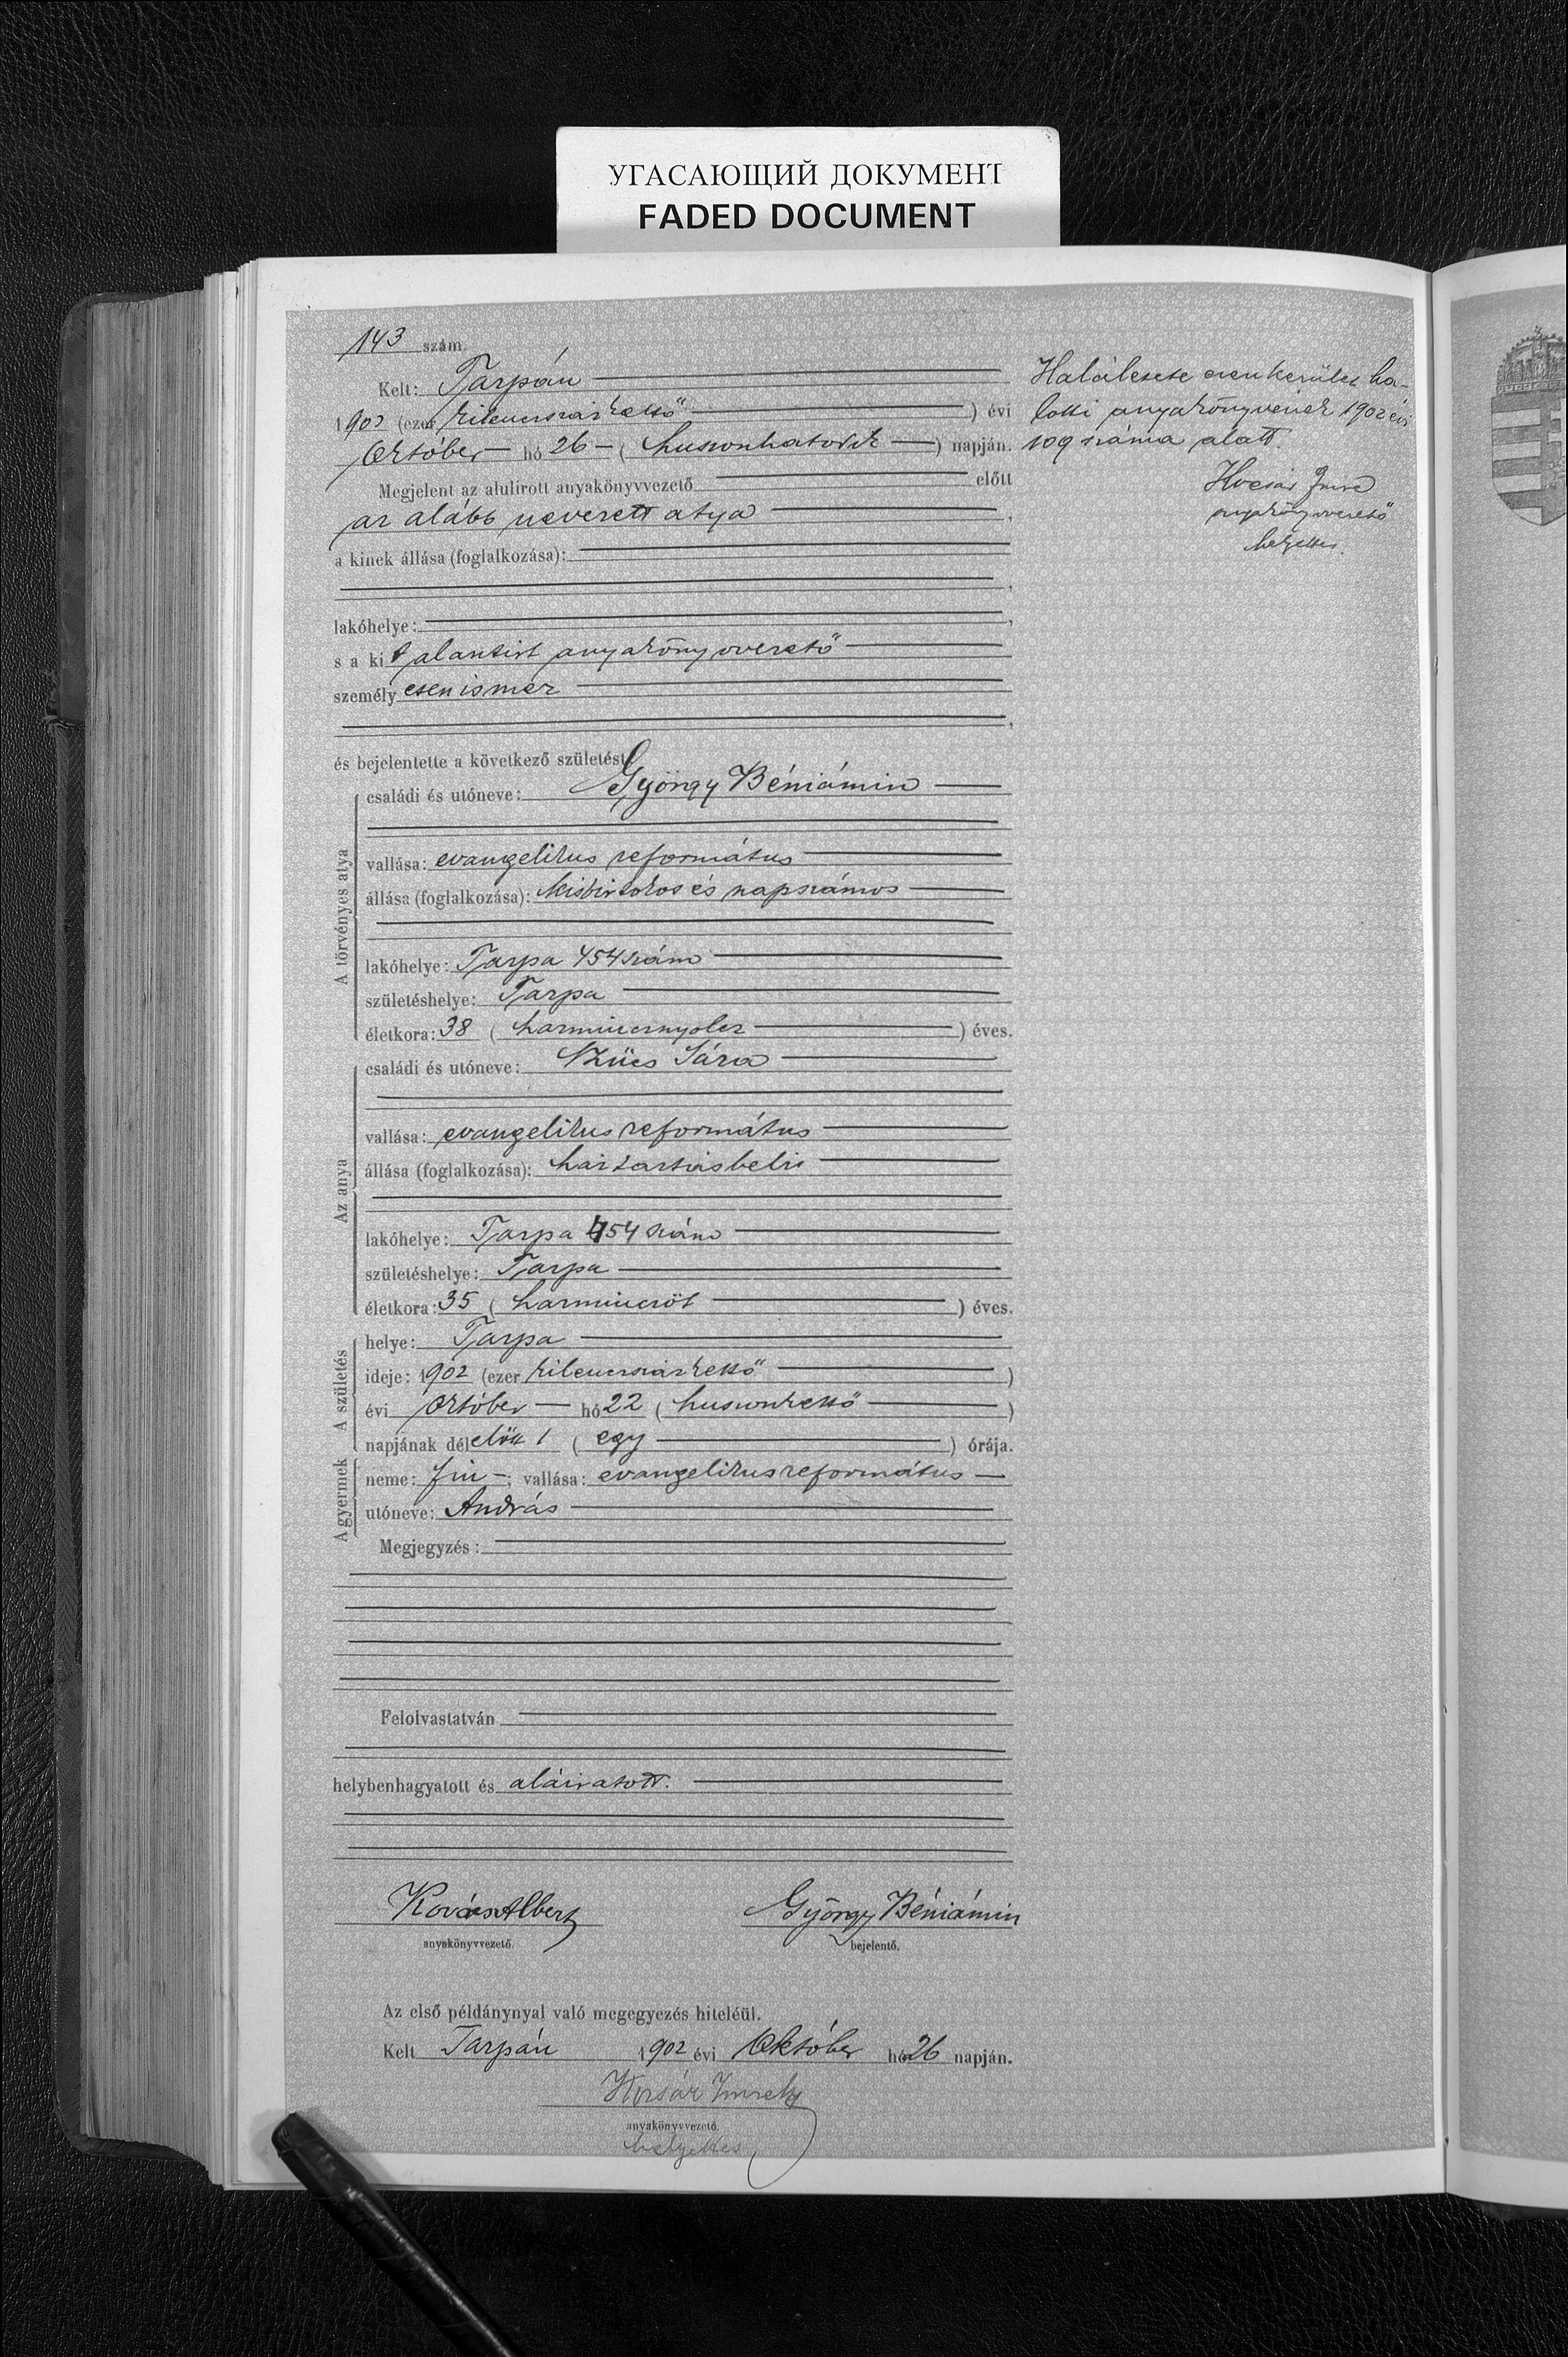 УГАСАЮЩИЙ ДОКУМЕНТ
FADED DOCUMENT
143 szám.
Kelt: Tarpán
1902 (ezer kilencszázkettő) évi
Október hó 26 (huszonhatodik) napján.
Megjelent az alulírott anyakönyvvezető előtt
az alább nevezett atya,
a kinek állása (foglalkozása):
lakóhelye:
s a kit alantirt anyakönyvvezető
személyesen ismer
és bejelentette a következő születést:
A törvényes atya
családi és utóneve: György Béniámin
vallása: evangelikus református
állása (foglalkozása): kisbirtokos és napszámos
lakóhelye: Tarpa 454 szám
születéshelye: Tarpa
életkora: 38 (harmincznyolcz) éves.
Az anya
családi és utóneve: Szücs Sára
vallása: evangelikus református
állása (foglalkozása): háztartásbeli
lakóhelye: Tarpa 454 szám
születéshelye: Tarpa
életkora: 35 (harminczöt) éves.
A születés
helye: Tarpa
ideje: 1902 (ezer kilencszázkettő)
évi Október hó 22 (huszonkettő)
napjának délelőtt 1 (egy) órája.
A gyermek
neme: fiu; vallása: evangelikus református
utóneve: András
Megjegyzés:
Felolvastatván
helybenhagyatott és aláiratott.
Kovács Albert György Béniámin
anyakönyvvezető. bejelentő.
Az első példánynyal való megegyezés hiteléül.
Kelt Tarpán 1902 évi Október hó 26 napján.
Imre
anyakönyvvezető.
helyettes
Halálesete ezen kerület ha-
lotti anyakönyvének 1902 évi
109 száma alatt.
Imre
anyakönyvvezető
helyettes.